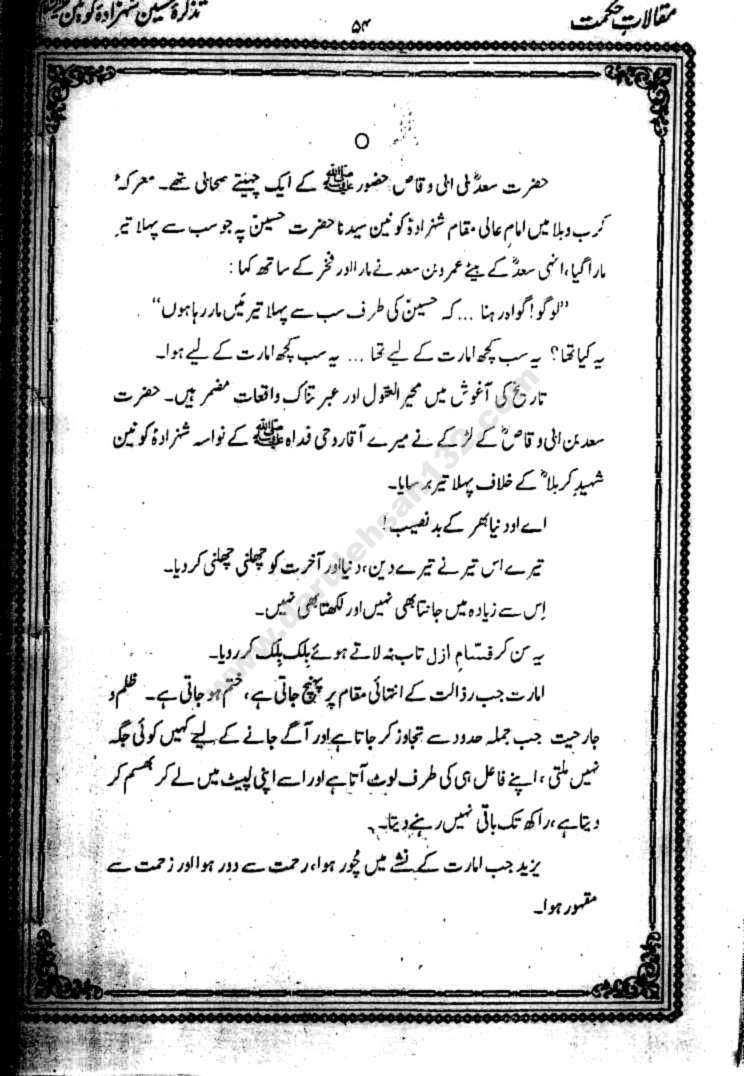 مقالاتِ حکمت
۵۴
تذکرۂ حسین شہزادۂ کونین
حضرت سعد بن ابی وقاص حضور ﷺ کے ایک چہیتے صحابی تھے۔ معرکہ
کرب و بلا میں امامِ عالی مقام شہزادۂ کونین سیدنا حضرت حسینؓ پہ جو سب سے پہلا تیر
مارا گیا، انہی سعدؓ کے بیٹے عمرو بن سعد نے مارا اور فخر کے ساتھ کہا :
”لوگو! گواہ رہنا ... کہ حسینؓ کی طرف سب سے پہلا تیر مَیں مار رہا ہوں“
یہ کیا تھا؟ یہ سب کچھ امارت کے لیے تھا ... یہ سب کچھ امارت کے لیے ہوا۔
تاریخ کی آغوش میں محیر العقول اور عبرتناک واقعات مضمر ہیں۔ حضرت
سعد بن ابی وقاصؓ کے لڑکے نے میرے آقا روحی فداہ ﷺ کے نواسہ شہزادۂ کونین
شہیدِ کربلاؓ کے خلاف پہلا تیر برسایا۔
اے او دنیا بھر کے بد نصیب!
تیرے اس تیر نے تیرے دین، دنیا اور آخرت کو چھلنی چھلنی کر دیا۔
اِس سے زیادہ میں جانتا بھی نہیں اور لکھتا بھی نہیں۔
یہ سن کر قسّامِ ازل تاب نہ لاتے ہوئے بلک بلک کر رو دیا۔
امارت جب رذالت کے انتہائی مقام پر پہنچ جاتی ہے، ختم ہو جاتی ہے۔ ظلم و
جارحیت جب جملہ حدود سے تجاوز کر جاتا ہے اور آگے جانے کے لیے کہیں کوئی جگہ
نہیں ملتی، اپنے فاعل ہی کی طرف لوٹ آتا ہے اور اسے اپنی لپیٹ میں لے کر بھسم کر
دیتا ہے، راکھ تک باقی نہیں رہنے دیتا۔
یزید جب امارت کے نشے میں چُور ہوا، رحمت سے دور ہوا اور زحمت سے
مقہور ہوا۔
www.darulehsan132.com